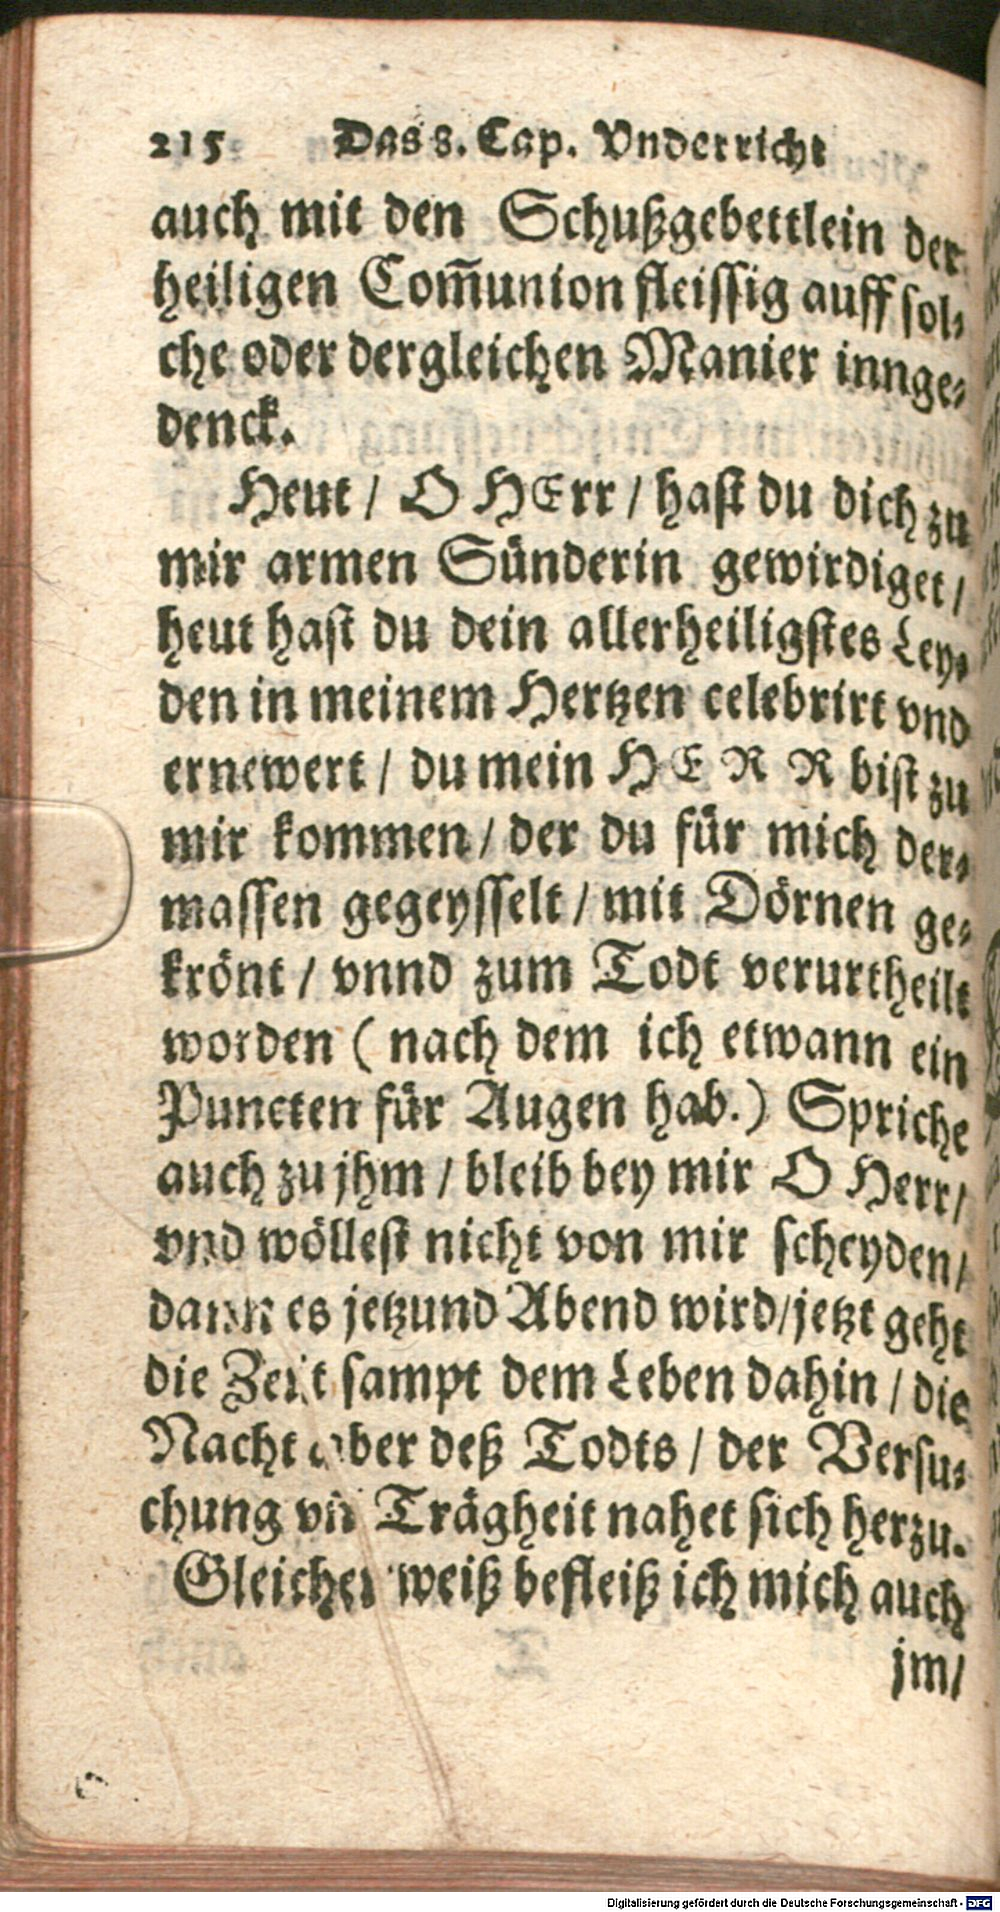 215 Das 8. Cap. Vnderricht
auch mit den Schußgebettlein der
heiligen Com̃union fleissig auff sol⸗
che oder dergleichen Manier innge⸗
denck.
Heut / O HErr / hast du dich zu
mir armen Sünderin gewirdiget /
heut hast du dein allerheiligstes Ley⸗
den in meinem Hertzen celebrirt vnd
ernewert / du mein HERR bist zu
mir kommen / der du für mich der⸗
massen gegeysselt / mit Dörnen ge⸗
krönt / vnnd zum Todt verurtheilt
worden ( nach dem ich etwann ein
Puncten für Augen hab.) Spriche
auch zu jhm / bleib bey mir O Herr /
vnd wöllest nicht von mir scheyden /
dann es jetzund Abend wird / jetzt geht
die Zeit sampt dem Leben dahin / die
Nacht aber deß Todts / der Versu⸗
chung vñ Trägheit nahet sich herzu.
Gleicher weiß befleiß ich mich auch
jm /
Digitalisierung gefördert durch die Deutsche Forschungsgemeinschaft - DFG